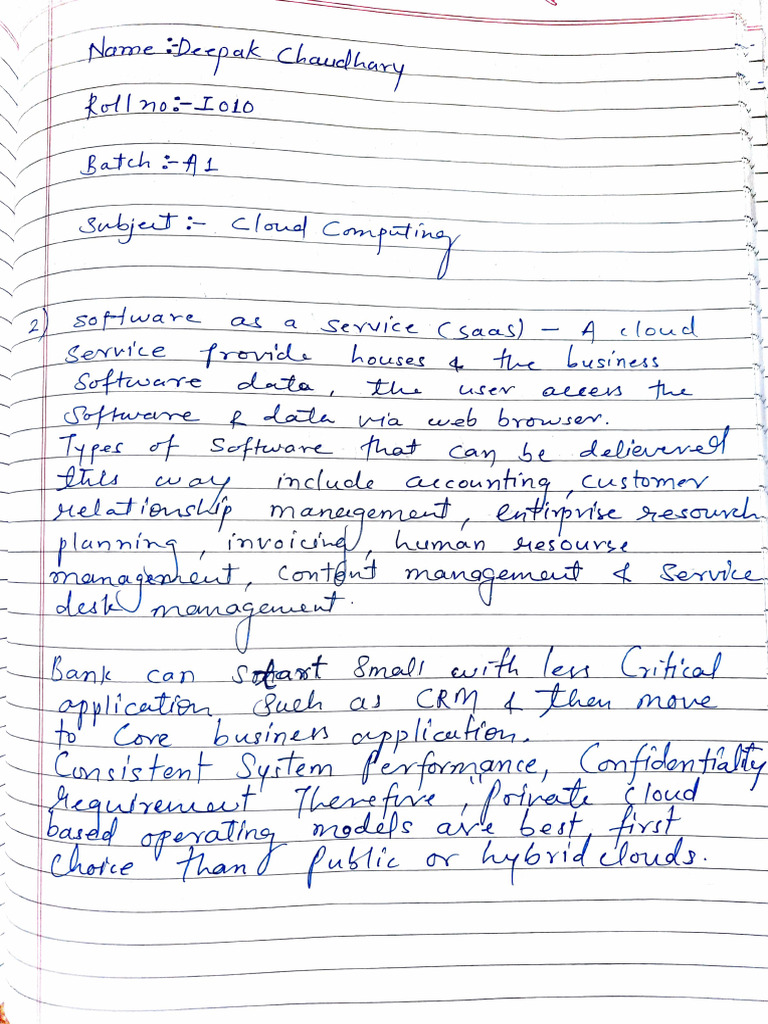 Name :- Deepak Chaudhary
Roll no :- I010
Batch :- A1
Subject :- Cloud Computing
2) Software as a service (saas) - A cloud
service provide houses & the business
software data, the user access the
software & data via web browser.
Types of software that can be delievered
this way include accounting, customer
relationship management, entirprise resourch
planning, invoicing, human resourse
management, content management & service
desk management.
Bank can start small with less Critical
application such as CRM & then move
to core business application.
Consistent System Performance, Confidentiality
requirement Therefore, "Private cloud
based operating models are best first
choice than Public or hybrid clouds.